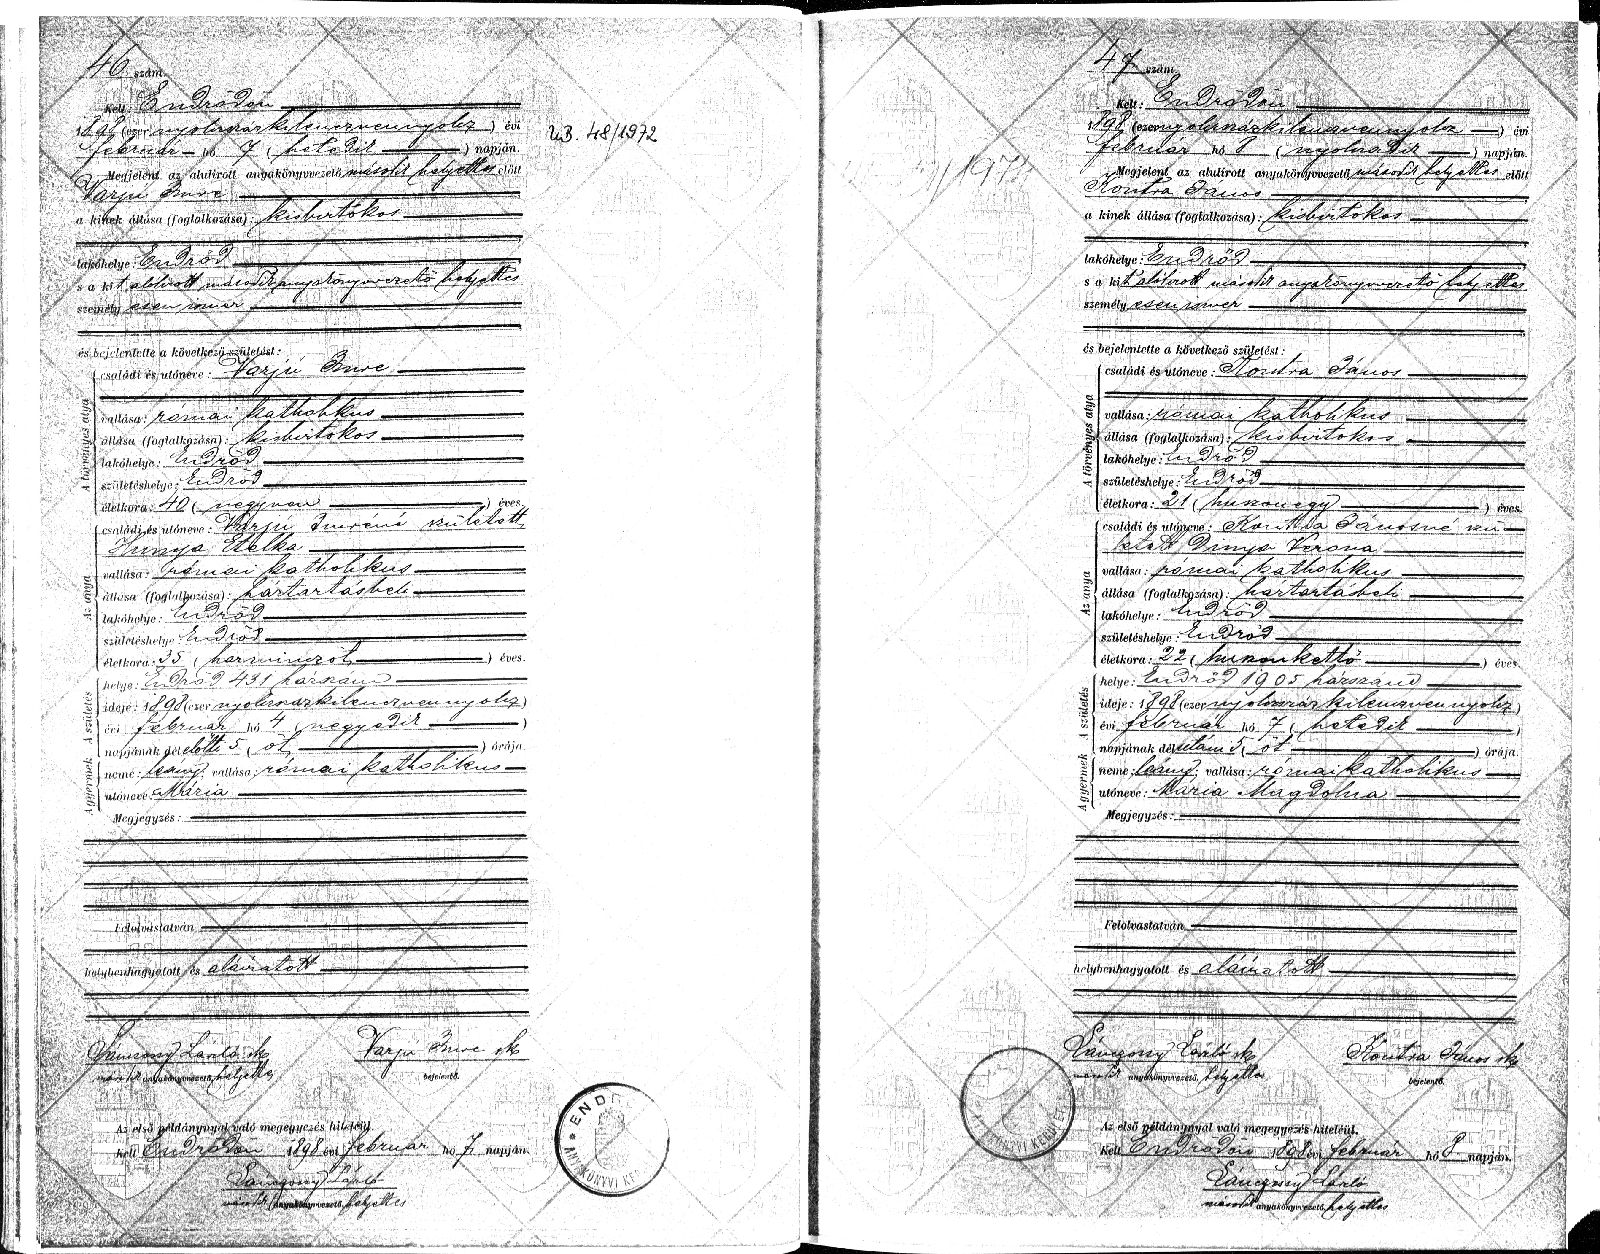 46 szám.
Kelt: Endrődön
1898 (ezer nyolczszázkilenczvennyolcz) évi
február hó 7 (hetedik) napján.
Megjelent az alulirott anyakönyvvezető második helyettes előtt
Varjú Imre
a kinek állása (foglalkozása): kisbirtokos
lakóhelye: Endrőd
s a kit alulirott második anyakönyvvezető helyettes
személyesen ismer
és bejelentette a következő születést:
A törvényes atya
családi és utóneve: Varjú Imre
vallása: római katholikus
állása (foglalkozása): kisbirtokos
lakóhelye: Endrőd
születéshelye: Endrőd
életkora: 40 (negyven) éves.
Az anya
családi és utóneve: Varjú Imréné született
Hunya Etelka
vallása: római katholikus
állása (foglalkozása): háztartásbeli
lakóhelye: Endrőd
születéshelye: Endrőd
életkora: 35 (harminczöt) éves.
A születés
helye: Endrőd 431 házszám
ideje: 1898 (ezer nyolczszázkilenczvennyolcz)
évi február hó 4 (negyedik)
napjának délelőtti 5 (öt) órája.
A gyermek
neme: leány; vallása: római katholikus
utóneve: Mária
Megjegyzés:
Felolvastatván
helybenhagyatott és aláiratott
László sk
második anyakönyvvezető helyettes
Varjú Imre sk
bejelentő.
Az első példánynyal való megegyezés hiteléül.
Kelt Endrődön 1898 évi február hó 7 napján.
László
második anyakönyvvezető helyettes
UB. 48/1972
ENDR
ANYAKÖNYVI KE
47 szám.
Kelt: Endrődön
1898 (ezer nyolczszázkilenczvennyolcz) évi
február hó 8 (nyolczadik) napján.
Megjelent az alulirott anyakönyvvezető második helyettes előtt
Kontra János
a kinek állása (foglalkozása): kisbirtokos
lakóhelye: Endrőd
s a kit alulirott második anyakönyvvezető helyettes
személyesen ismer
és bejelentette a következő születést:
A törvényes atya
családi és utóneve: Kontra János
vallása: római katholikus
állása (foglalkozása): kisbirtokos
lakóhelye: Endrőd
születéshelye: Endrőd
életkora: 21 (huszonegy) éves.
Az anya
családi és utóneve: Kontra Jánosné szü-
letett Dinya Verona
vallása: római katholikus
állása (foglalkozása): háztartásbeli
lakóhelye: Endrőd
születéshelye: Endrőd
életkora: 22 (huszonkettő) éves.
A születés
helye: Endrőd 1905 házszám
ideje: 1898 (ezer nyolczszázkilenczvennyolcz)
évi február hó 7 (hetedik)
napjának délutáni 5 (öt) órája.
A gyermek
neme: leány; vallása: római katholikus
utóneve: Mária Magdolna
Megjegyzés:
Felolvastatván
helybenhagyatott és aláiratott
László sk
második anyakönyvvezető, helyettes
Kontra János sk
bejelentő.
Az első példánynyal való megegyezés hiteléül.
Kelt Endrődön 1898 évi február hó 8 napján.
László
második anyakönyvvezető, helyettes